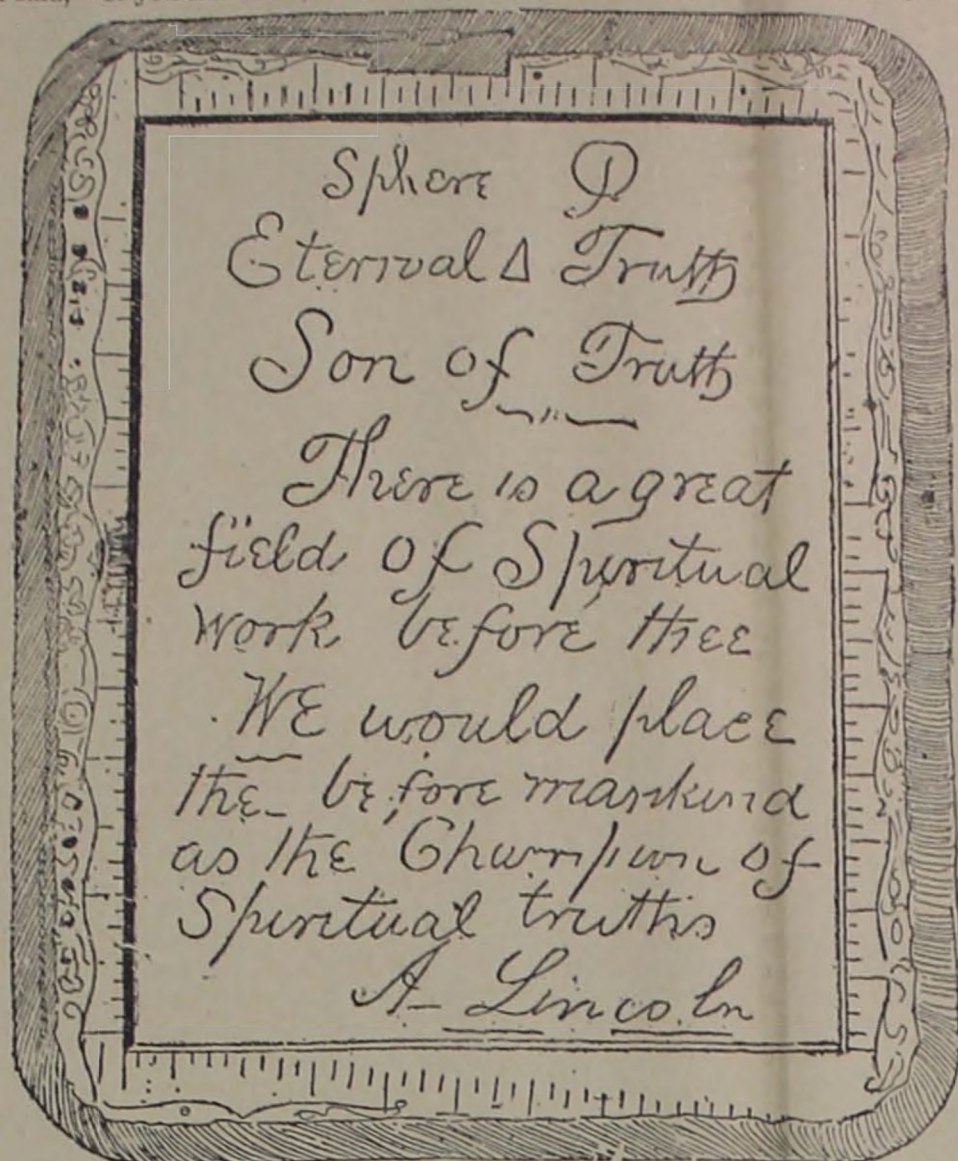 Sphere
Eternal Δ Truth
Son of Truth
There is a great
field of Spiritual
work before thee
WE would place
the before mankind
as the Champion of
Spiritual truths
A Lincoln